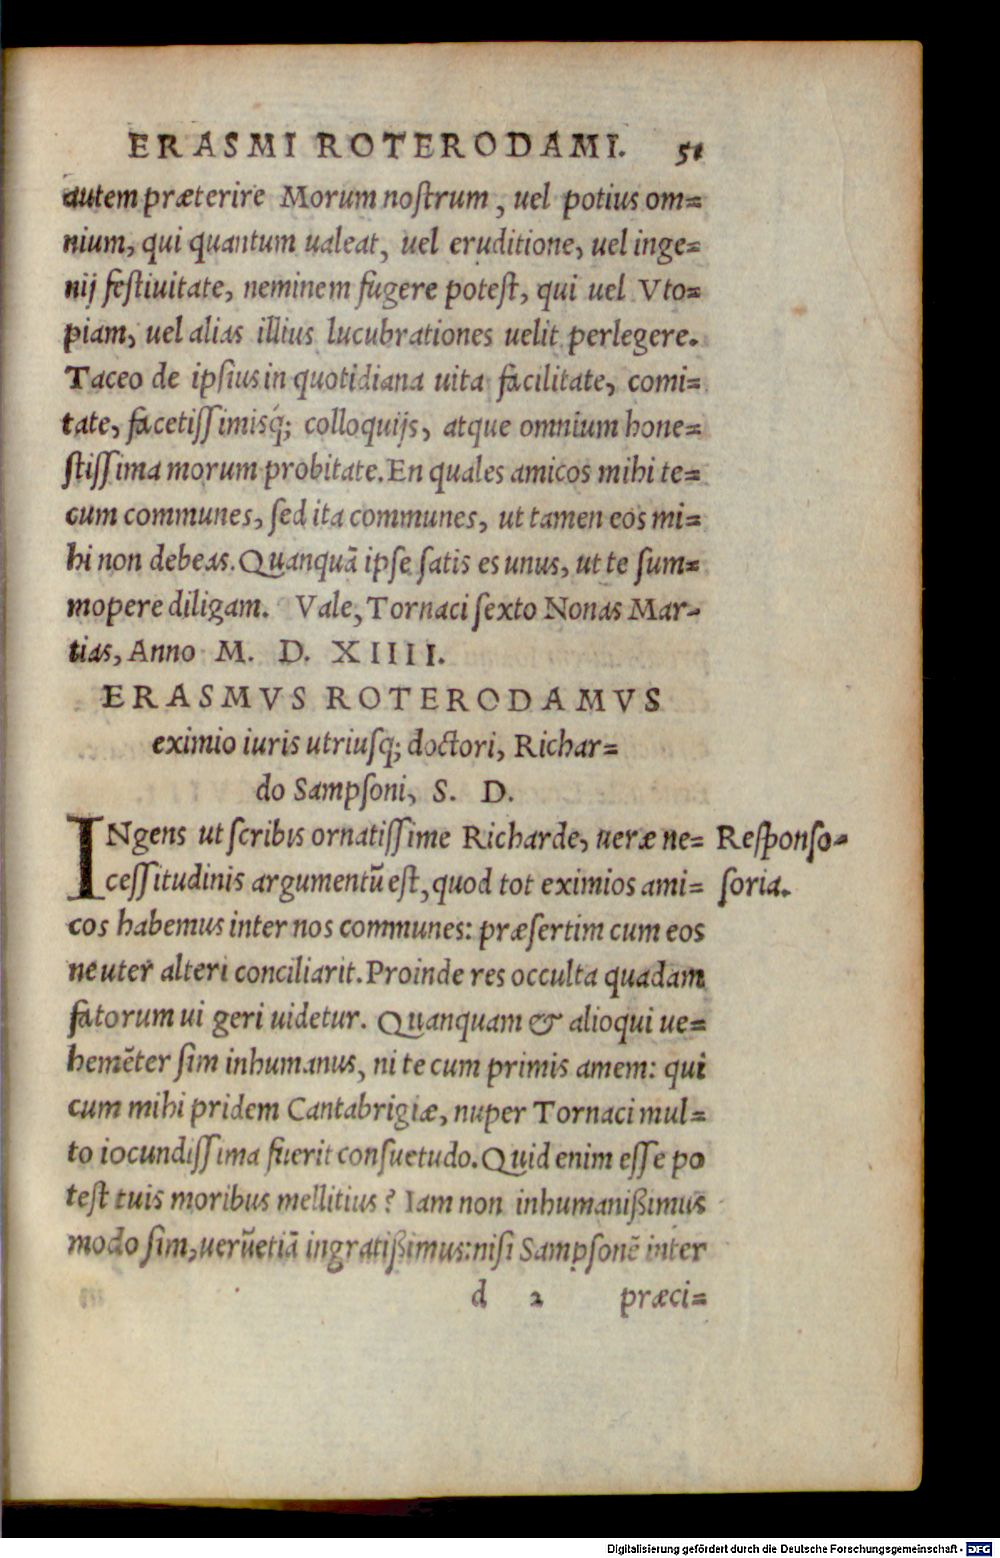 ERASMI ROTERODAMI. 51
autem præterire Morum noſtrum, uel potius om=
nium, qui quantum ualeat, uel eruditione, uel inge=
nij feſtiuitate, neminem fugere poteſt, qui uel Vto=
piam, uel alias illius lucubrationes uelit perlegere.
Taceo de ipſius in quotidiana uita facilitate, comi=
tate, facetiſſimisq́; colloquijs, atque omnium hone=
ſtiſſima morum probitate. En quales amicos mihi te=
cum communes, ſed ita communes, ut tamen eos mi=
hi non debeas. Quanquā ipſe ſatis es unus, ut te ſum=
mopere diligam. Vale, Tornaci ſexto Nonas Mar-
tias, Anno M. D. XIIII.
ERASMVS ROTERODAMVS
eximio iuris utriuſq; doctori, Richar=
do Sampſoni, S. D.
INgens ut ſcribis ornatiſſime Richarde, ueræ ne= Reſponſo=
ceſſitudinis argumentū eſt, quod tot eximios ami= ſoria.
cos habemus inter nos communes: præſertim cum eos
neuter alteri conciliarit. Proinde res occulta quadam
fatorum ui geri uidetur. Quanquam & alioqui ue=
hemēter ſim inhumanus, ni te cum primis amem: qui
cum mihi pridem Cantabrigiæ, nuper Tornaci mul=
to iocundiſſima fuerit conſuetudo. Quid enim eſſe po
teſt tuis moribus mellitius? Iam non inhumanißimus
modo ſim, uerūetiā ingratißimus: niſi Sampſonē inter
d 2 præci=
Digitalisierung gefördert durch die Deutsche Forschungsgemeinschaft - DFG